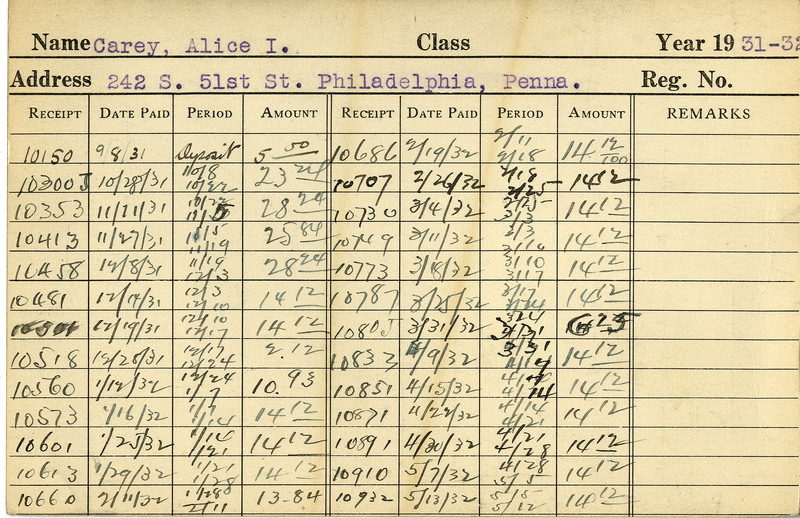 Name Carey, Alice I. Class Year 19 31-32
Address 242 S. 51st St. Philadelphia, Penna. Reg. No.
RECEIPT DATE PAID PERIOD AMOUNT RECEIPT DATE PAID PERIOD AMOUNT REMARKS
10150 9/8/31 Deposit 5.00 10686 2/19/32 2/11 2/18 14 12/100
10300J 10/28/31 10/8 10/22 23 24 10707 2/26/32 2/18 2/25 14 12
10353 11/21/31 28 24 10730 3/4/32 2/25 3/3 14 12
10413 11/27/31 11/5 11/19 25 84 10749 3/11/32 3/3 3/10 14 12
10458 12/8/31 11/19 12/3 28 24 10773 3/18/32 3/10 3/17 14 12
10481 12/14/31 12/3 12/10 14 12 10787 3/25/32 3/17 3/24 14 12
12/19/31 12/10 12/17 14 12 10805 3/31/32 3/24 3/31
10518 12/28/31 12/17 12/24 2.12 10832 4/9/32 3/31 14 12
10560 1/12/32 12/24 1/7 10.93 10851 4/15/32 4/14 14 12
10573 1/16/32 1/7 1/14 14 12 10871 4/22/32 4/14 4/21 14 12
10601 1/25/32 1/14 1/21 14 12 10891 4/30/32 4/21 4/28 14 12
10613 1/29/32 1/21 1/28 14 12 10910 5/7/32 4/28 5/5 14 12
10660 2/11/32 1/28 2/11 13-84 10932 5/13/32 5/5 5/12 14 12